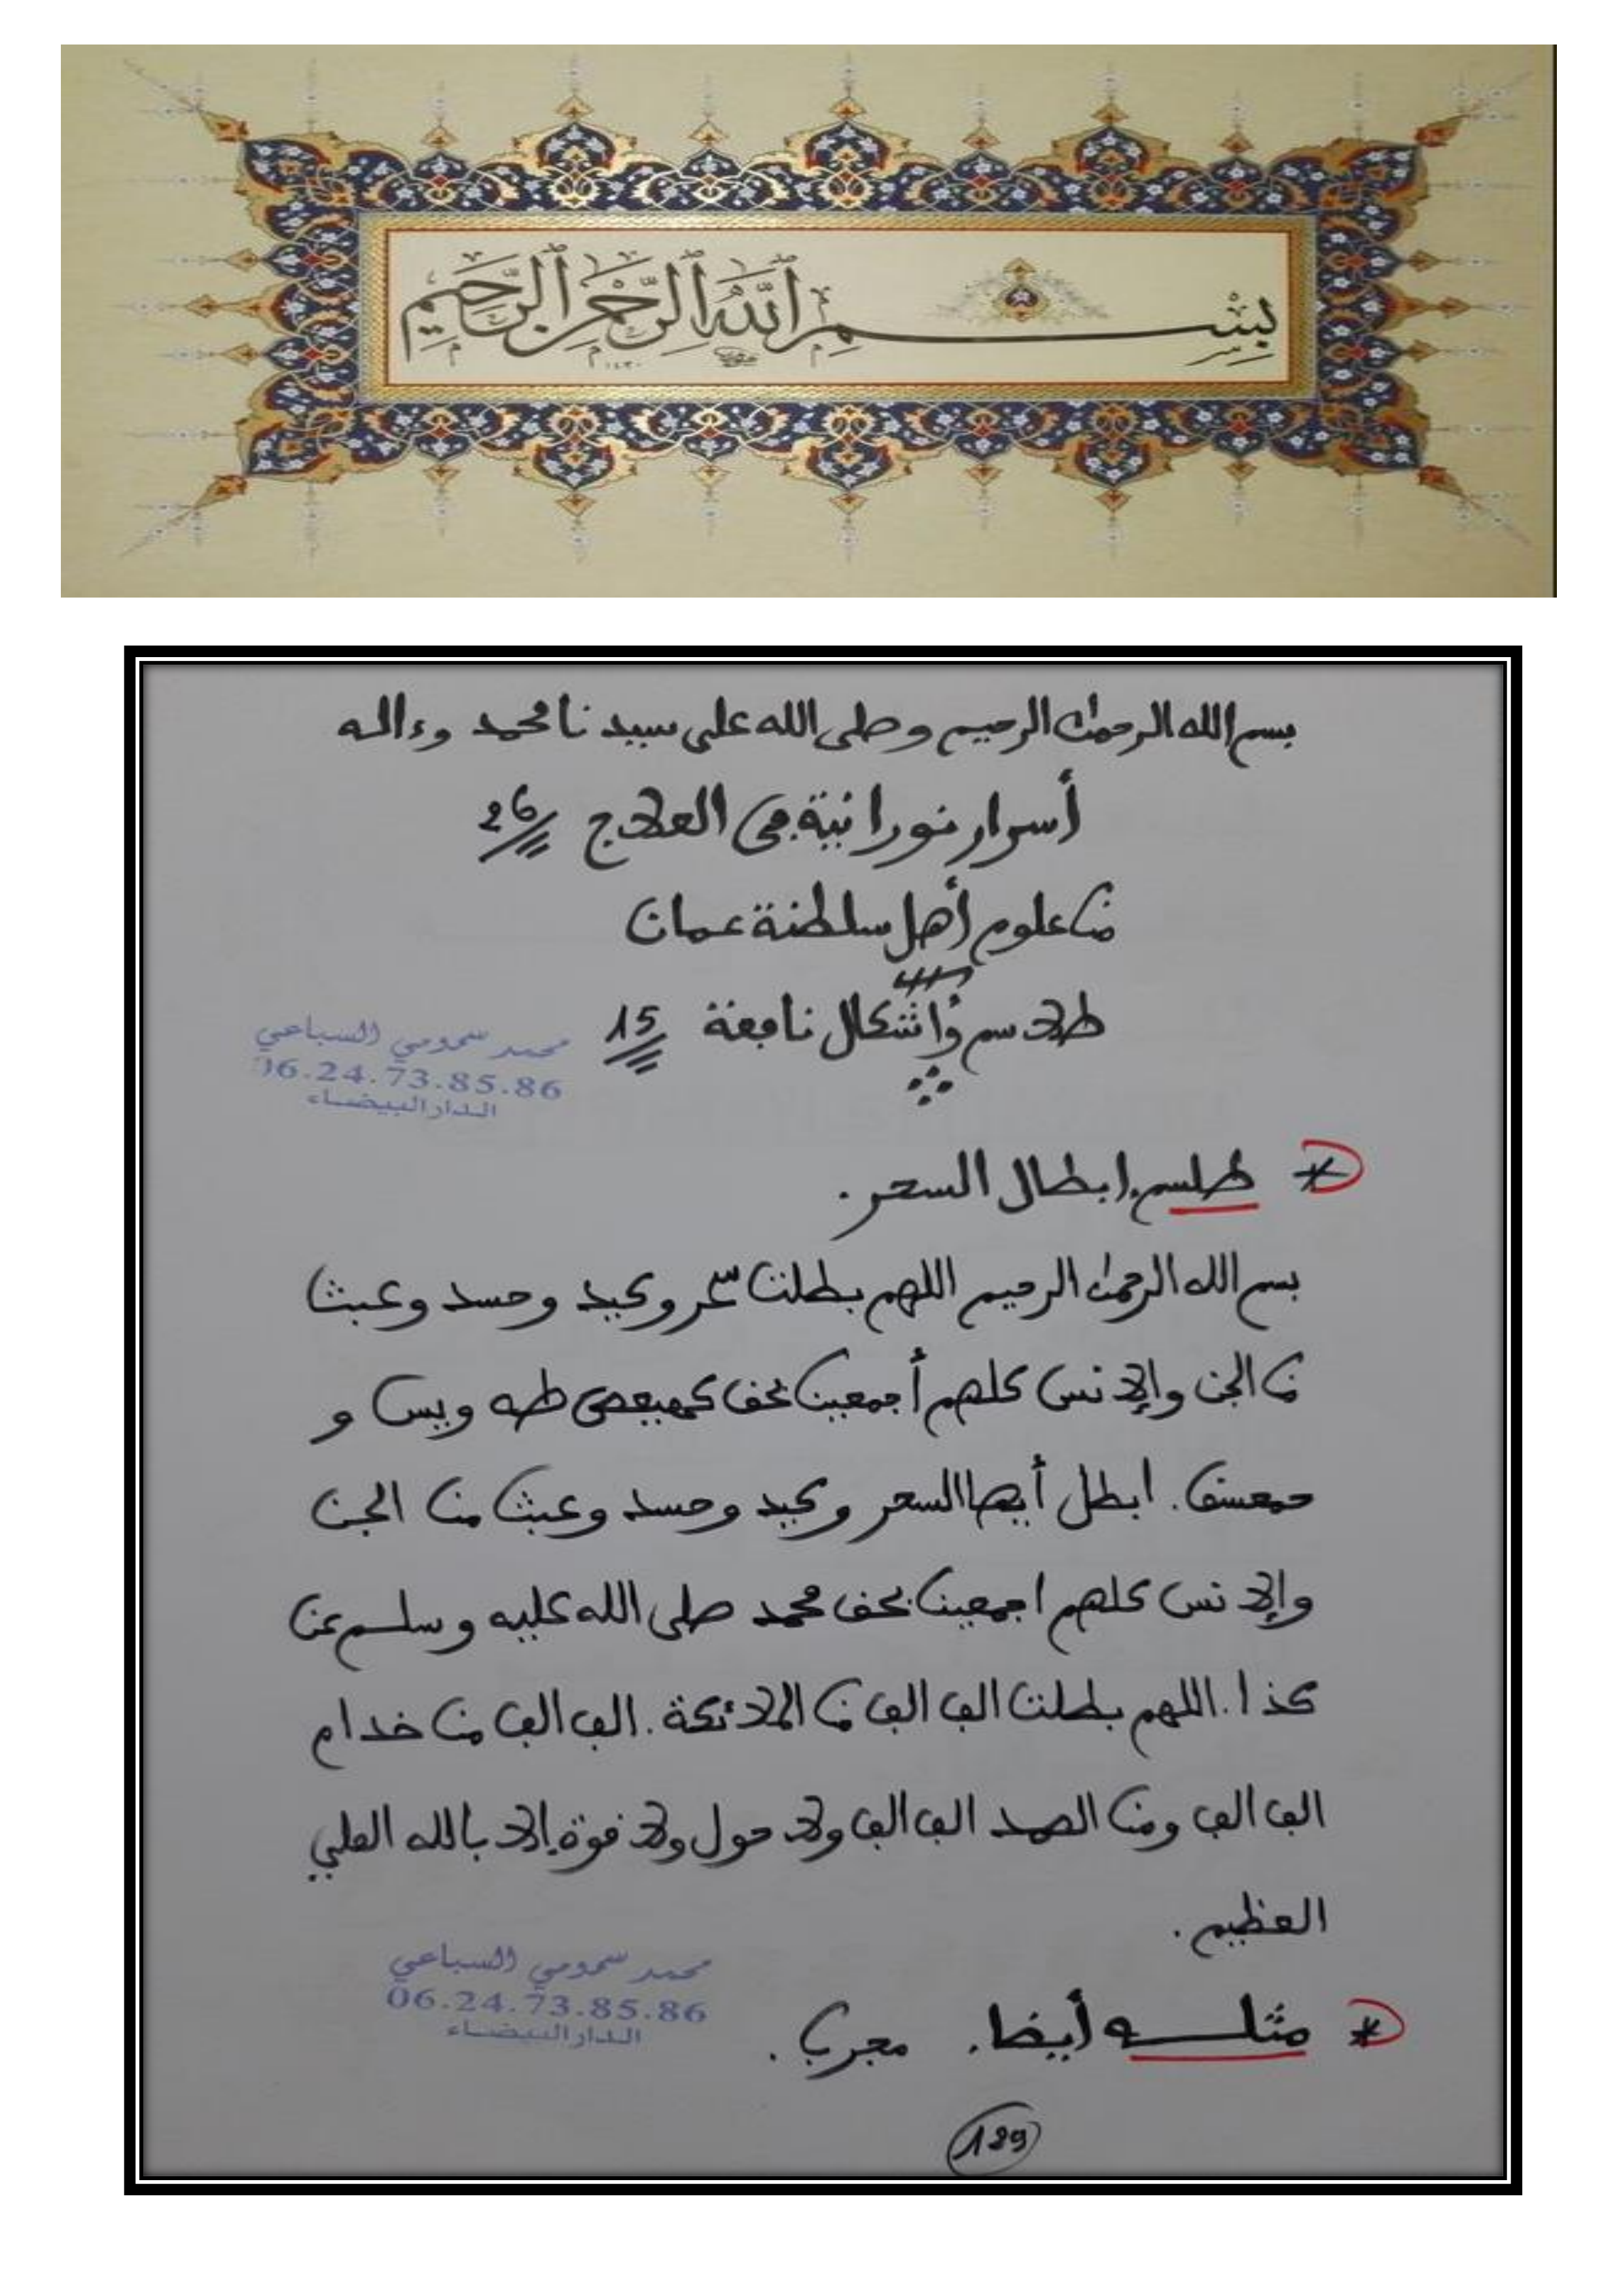 بسم الله الرحمن الرحيم
بسم الله الرحمن الرحيم وصلى الله على سيدنا محمد وءاله
أسرار نورانية في العلاج 26
من علوم أهل سلطنة عمان
طلاسم وأشكال نافعة 15
محمد سمومي السباعي
06.24.73.85.86
الدار البيضاء
* طلسم إبطال السحر.
بسم الله الرحمن الرحيم اللهم بطلت سحر وكيد وحسد وعبث
من الجن والإنس كلهم أجمعين بحق كهيعص طه ويس و
حمعسق. ابطل أيها السحر وكيد وحسد وعبث من الجن
والإنس كلهم اجمعين بحق محمد صلى الله عليه وسلم عن
كذا. اللهم بطلت الف الف من الملائكة. الف الف من خدام
الف الف ومن الصمد الف الف ولا حول ولا قوة إلا بالله العلي
العظيم.
محمد سمومي السباعي
06.24.73.85.86
الدار البيضاء
* مثله أيضا. مجرب.
129